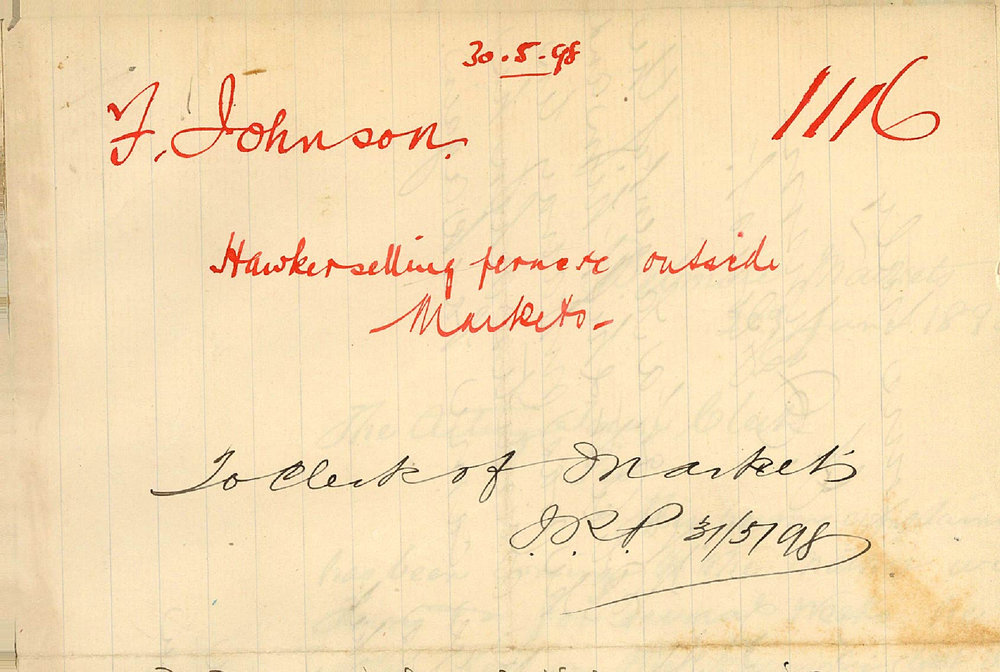 30.5.98
F. Johnson.
1116
Hawker selling outside
Markets-
To Clerk of Markets
J.R.P 31/5/98